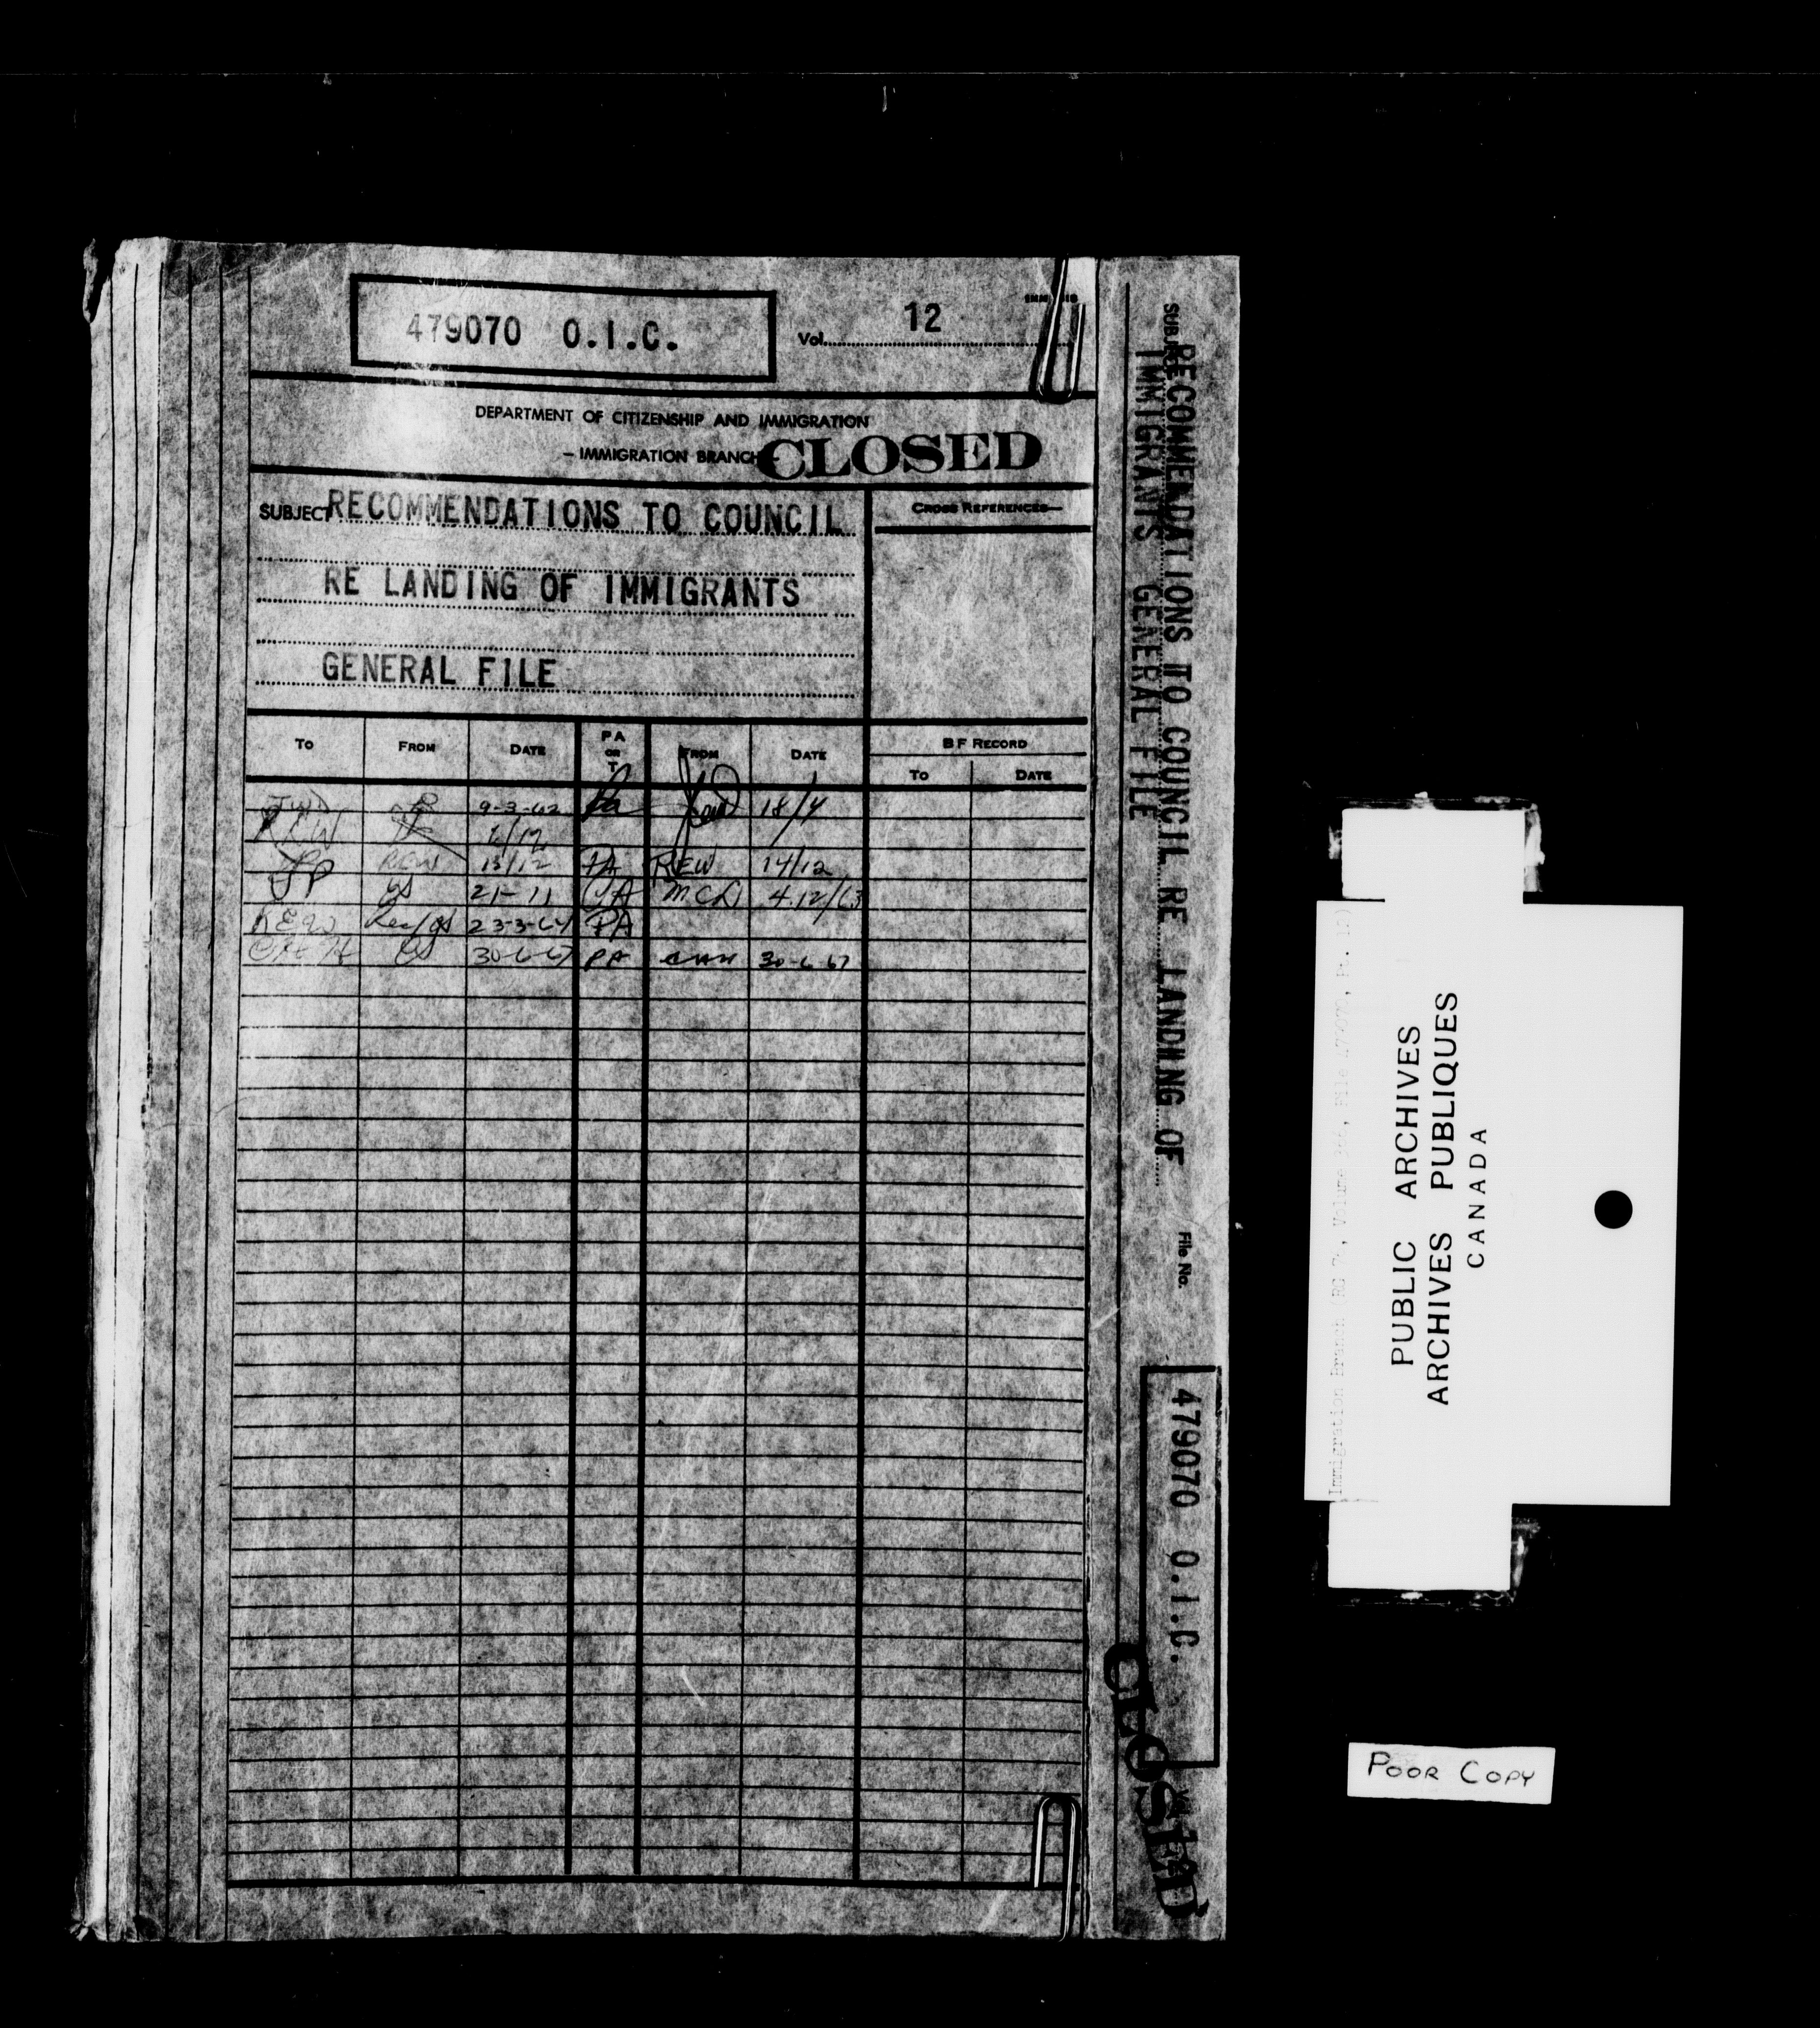 479070 O.I.C.
Vol. 12
DEPARTMENT OF CITIZENSHIP AND IMMIGRATION
– IMMIGRATION BRANCH –
CLOSED
SUBJECT RECOMMENDATIONS TO COUNCIL
RE LANDING OF IMMIGRANTS
GENERAL FILE
CROSS REFERENCES—
TO FROM DATE PA OR T FROM DATE
B F RECORD
TO DATE
9-3-62 18/4
REW
JP REW 13/12 PA REW 14/12
21-11 PA MCD 4.12/63
REW Rec/gs 23-3-64 PA
30-6-67 PA 30-6-67
SUBJECT
RECOMMENDATIONS TO COUNCIL RE LANDING OF
IMMIGRANTS GENERAL FILE
File No.
479070 O.I.C.
Vol. 12
CLOSED
Immigration Branch
PUBLIC ARCHIVES
ARCHIVES PUBLIQUES
CANADA
POOR COPY